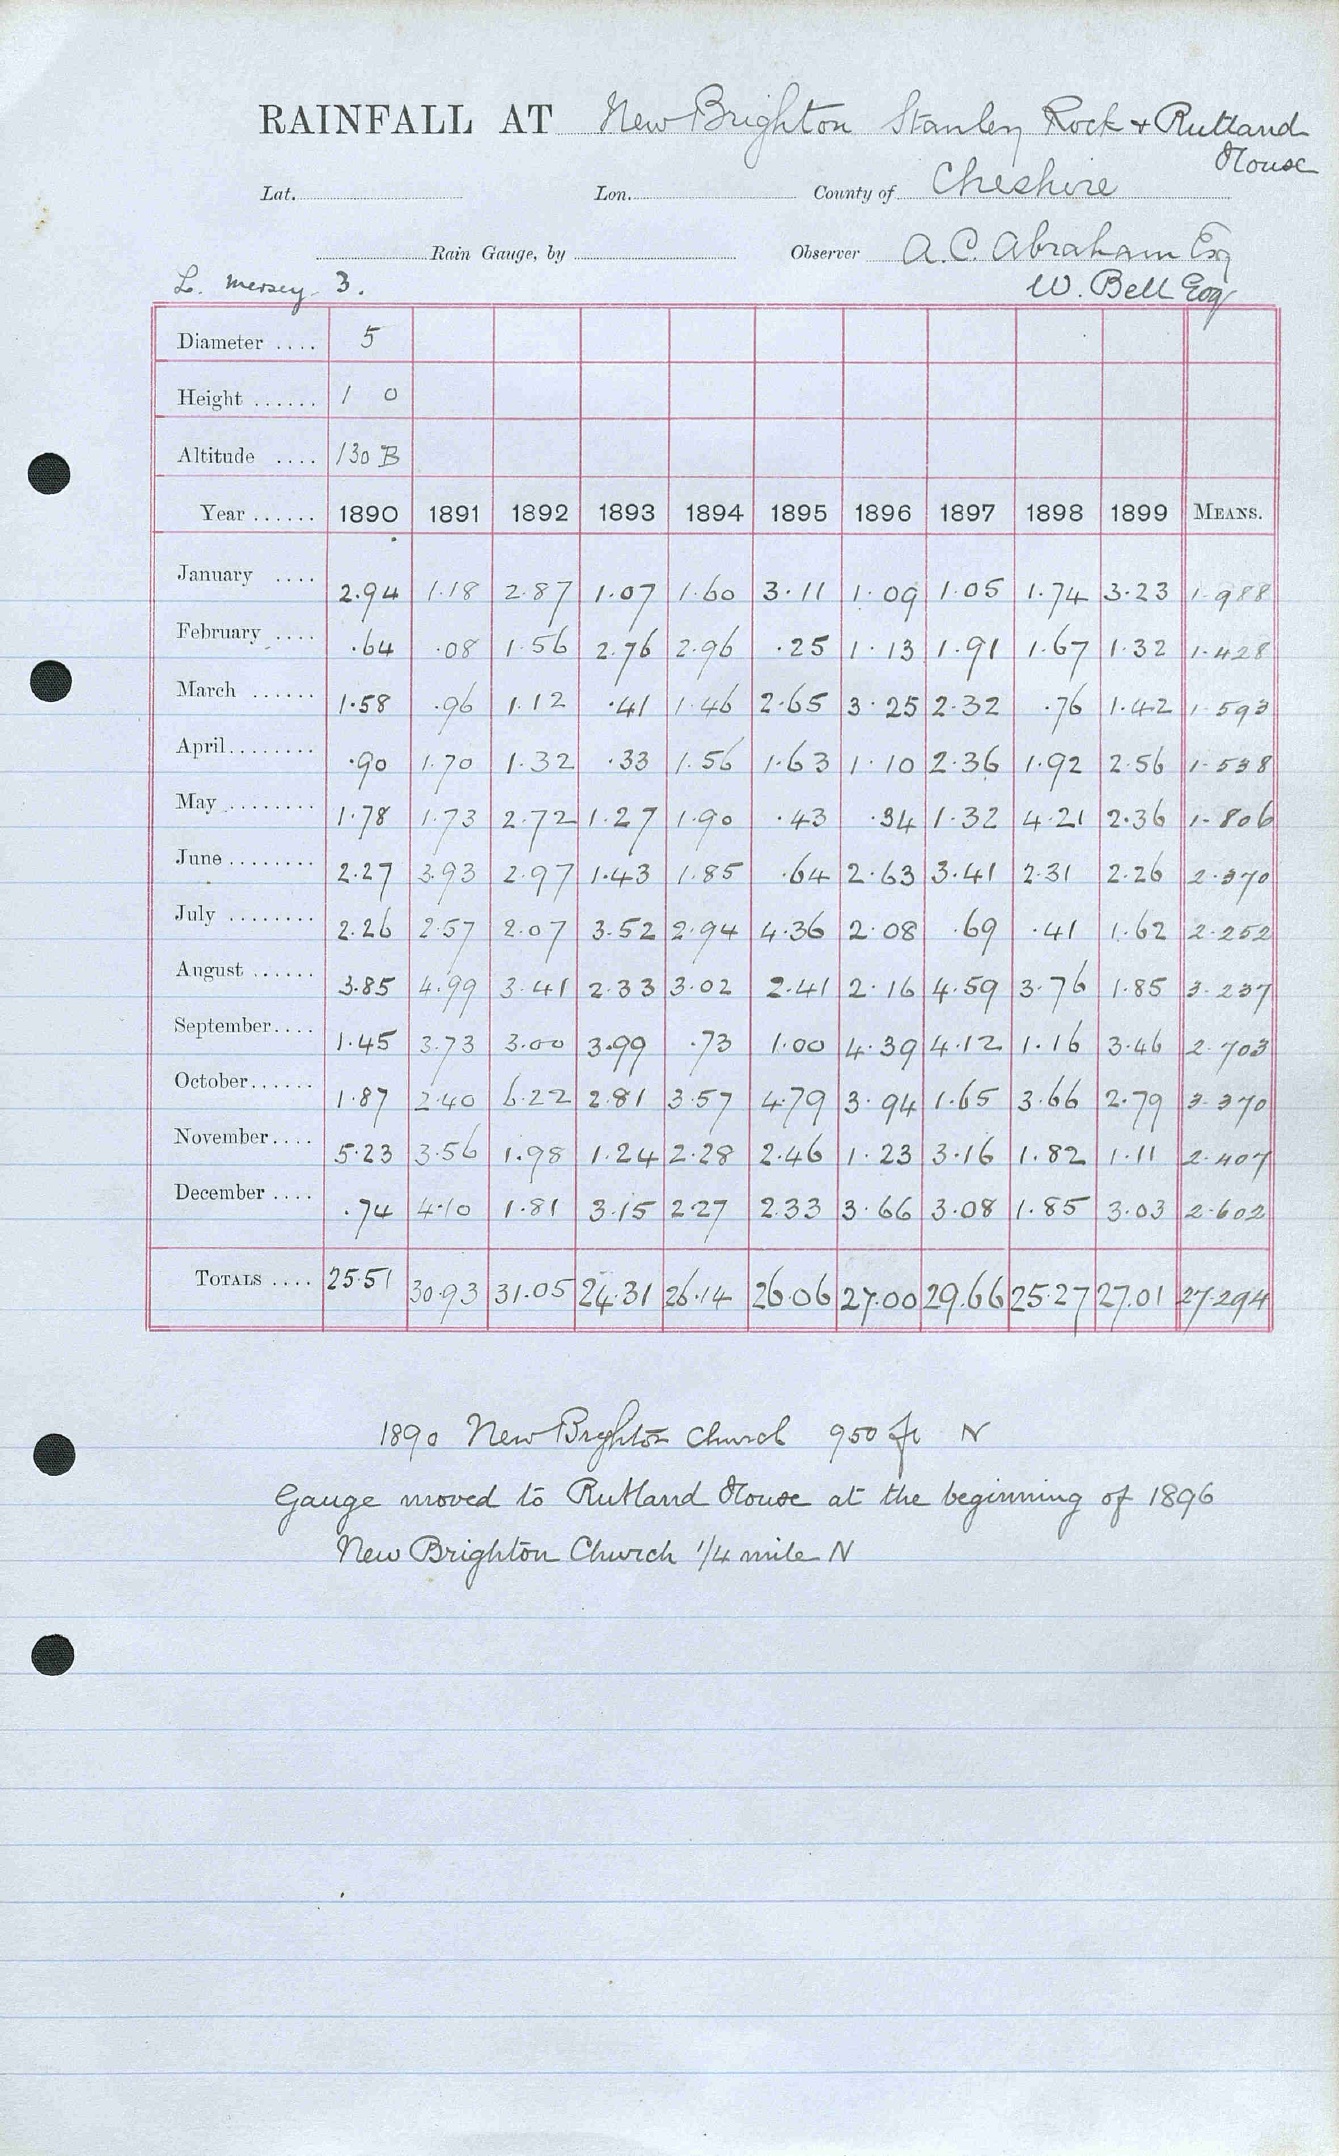 RAINFALL AT New Brighton Stanley Rock + Rutland
House
Lat. Lon. County of Cheshire
Rain Gauge, by Observer A.C. Abraham Esq
L. Mersey 3. W. Bell Esq
Diameter .... 5
Height ...... 1 0
Altitude .... 130 B
Year ...... 1890 1891 1892 1893 1894 1895 1896 1897 1898 1899 MEANS.
January .... 2.94 1.18 2.87 1.07 1.60 3.11 1.09 1.05 1.74 3.23 1.988
February .... .64 .08 1.56 2.76 2.96 .25 1.13 1.91 1.67 1.32 1.428
March ...... 1.58 .96 1.12 .41 1.46 2.65 3.25 2.32 .76 1.42 1.593
April........ .90 1.70 1.32 .33 1.56 1.63 1.10 2.36 1.92 2.56 1.538
May ........ 1.78 1.73 2.72 1.27 1.90 .43 .34 1.32 4.21 2.36 1.806
June ........ 2.27 3.93 2.97 1.43 1.85 .64 2.63 3.41 2.31 2.26 2.370
July ........ 2.26 2.57 2.07 3.52 2.94 4.36 2.08 .69 .41 1.62 2.252
August ...... 3.85 4.99 3.41 2.33 3.02 2.41 2.16 4.59 3.76 1.85 3.237
September.... 1.45 3.73 3.00 3.99 .73 1.00 4.39 4.12 1.16 3.46 2.703
October...... 1.87 2.40 6.22 2.81 3.57 4.79 3.94 1.65 3.66 2.79 3.370
November.... 5.23 3.56 1.98 1.24 2.28 2.46 1.23 3.16 1.82 1.11 2.407
December .... .74 4.10 1.81 3.15 2.27 2.33 3.66 3.08 1.85 3.03 2.602
TOTALS .... 25.51 30.93 31.05 24.31 26.14 26.06 27.00 29.66 25.27 27.01 27.294
1890 New Brighton Church 950 ft N
Gauge moved to Rutland House at the beginning of 1896
New Brighton Church 1/4 mile N